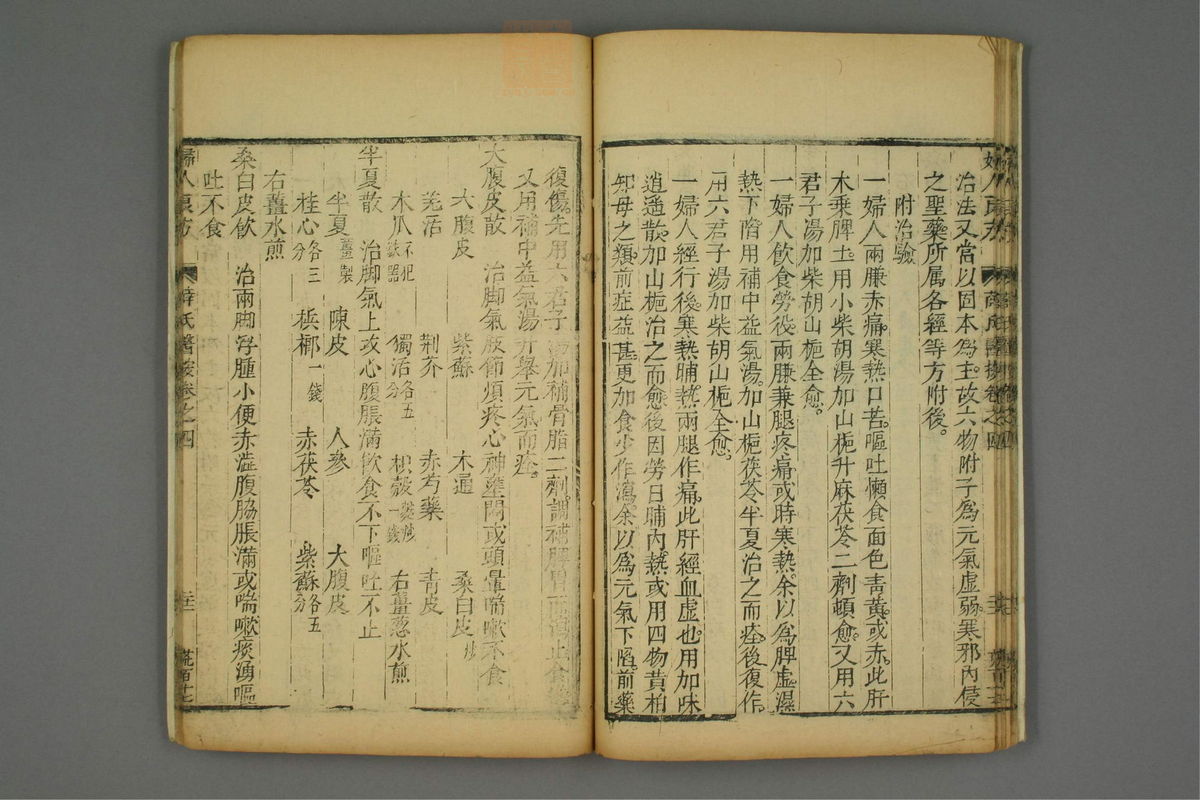 治法又當以固本為主故六物附子為元氣虛弱寒邪內侵
之聖藥所属各經等方附後。
附治驗
一婦人兩膁赤痛。寒熱口苦。嘔吐懶食面色青黃。或赤。此肝
木乗脾土。用小柴胡湯加山梔升麻茯苓二劑頓愈。又用六
君子湯加柴胡山梔全愈。
一婦人飲食勞役。兩膁兼腿疼痛或時寒熱。余以為脾虛濕
熱下陷用補中益氣湯。加山梔茯苓半夏治之而痊。後復作。
用六君子湯加柴胡山梔全愈。
一婦人經行後寒熱晡熱。兩腿作痛。此肝經血虛也。用加味
逍遥散。加山梔治之而愈後因勞日晡內熱。或用四物黃柏
知母之類。前症益甚。更加食少作瀉。余以為元氣下陷。前藥
復傷。先用六君子湯加補骨脂二劑。調補脾胃而瀉止食
又用補中益氣湯升舉元氣而痊。
大腹皮散　治脚氣肢節煩疼心神壅悶或頭暈喘嗽不食
大腹皮　紫蘇　木通　桑白皮炒
羌活　荆芥　赤芍藥　青皮
木瓜不犯鐵器　獨活各五分　枳殼 右薑葱水煎
半夏散　治脚氣上攻心腹脹滿飲食不下嘔吐不止
半夏薑製　陳皮　人參　大腹皮
桂心各三分　檳榔一錢　赤茯苓　紫蘇各五分
右薑水煎
桑白皮飲　治兩脚浮腫小便赤澁腹脇脹滿或喘嗽痰湧嘔
吐不食
婦人良方　薛氏醫按卷之四